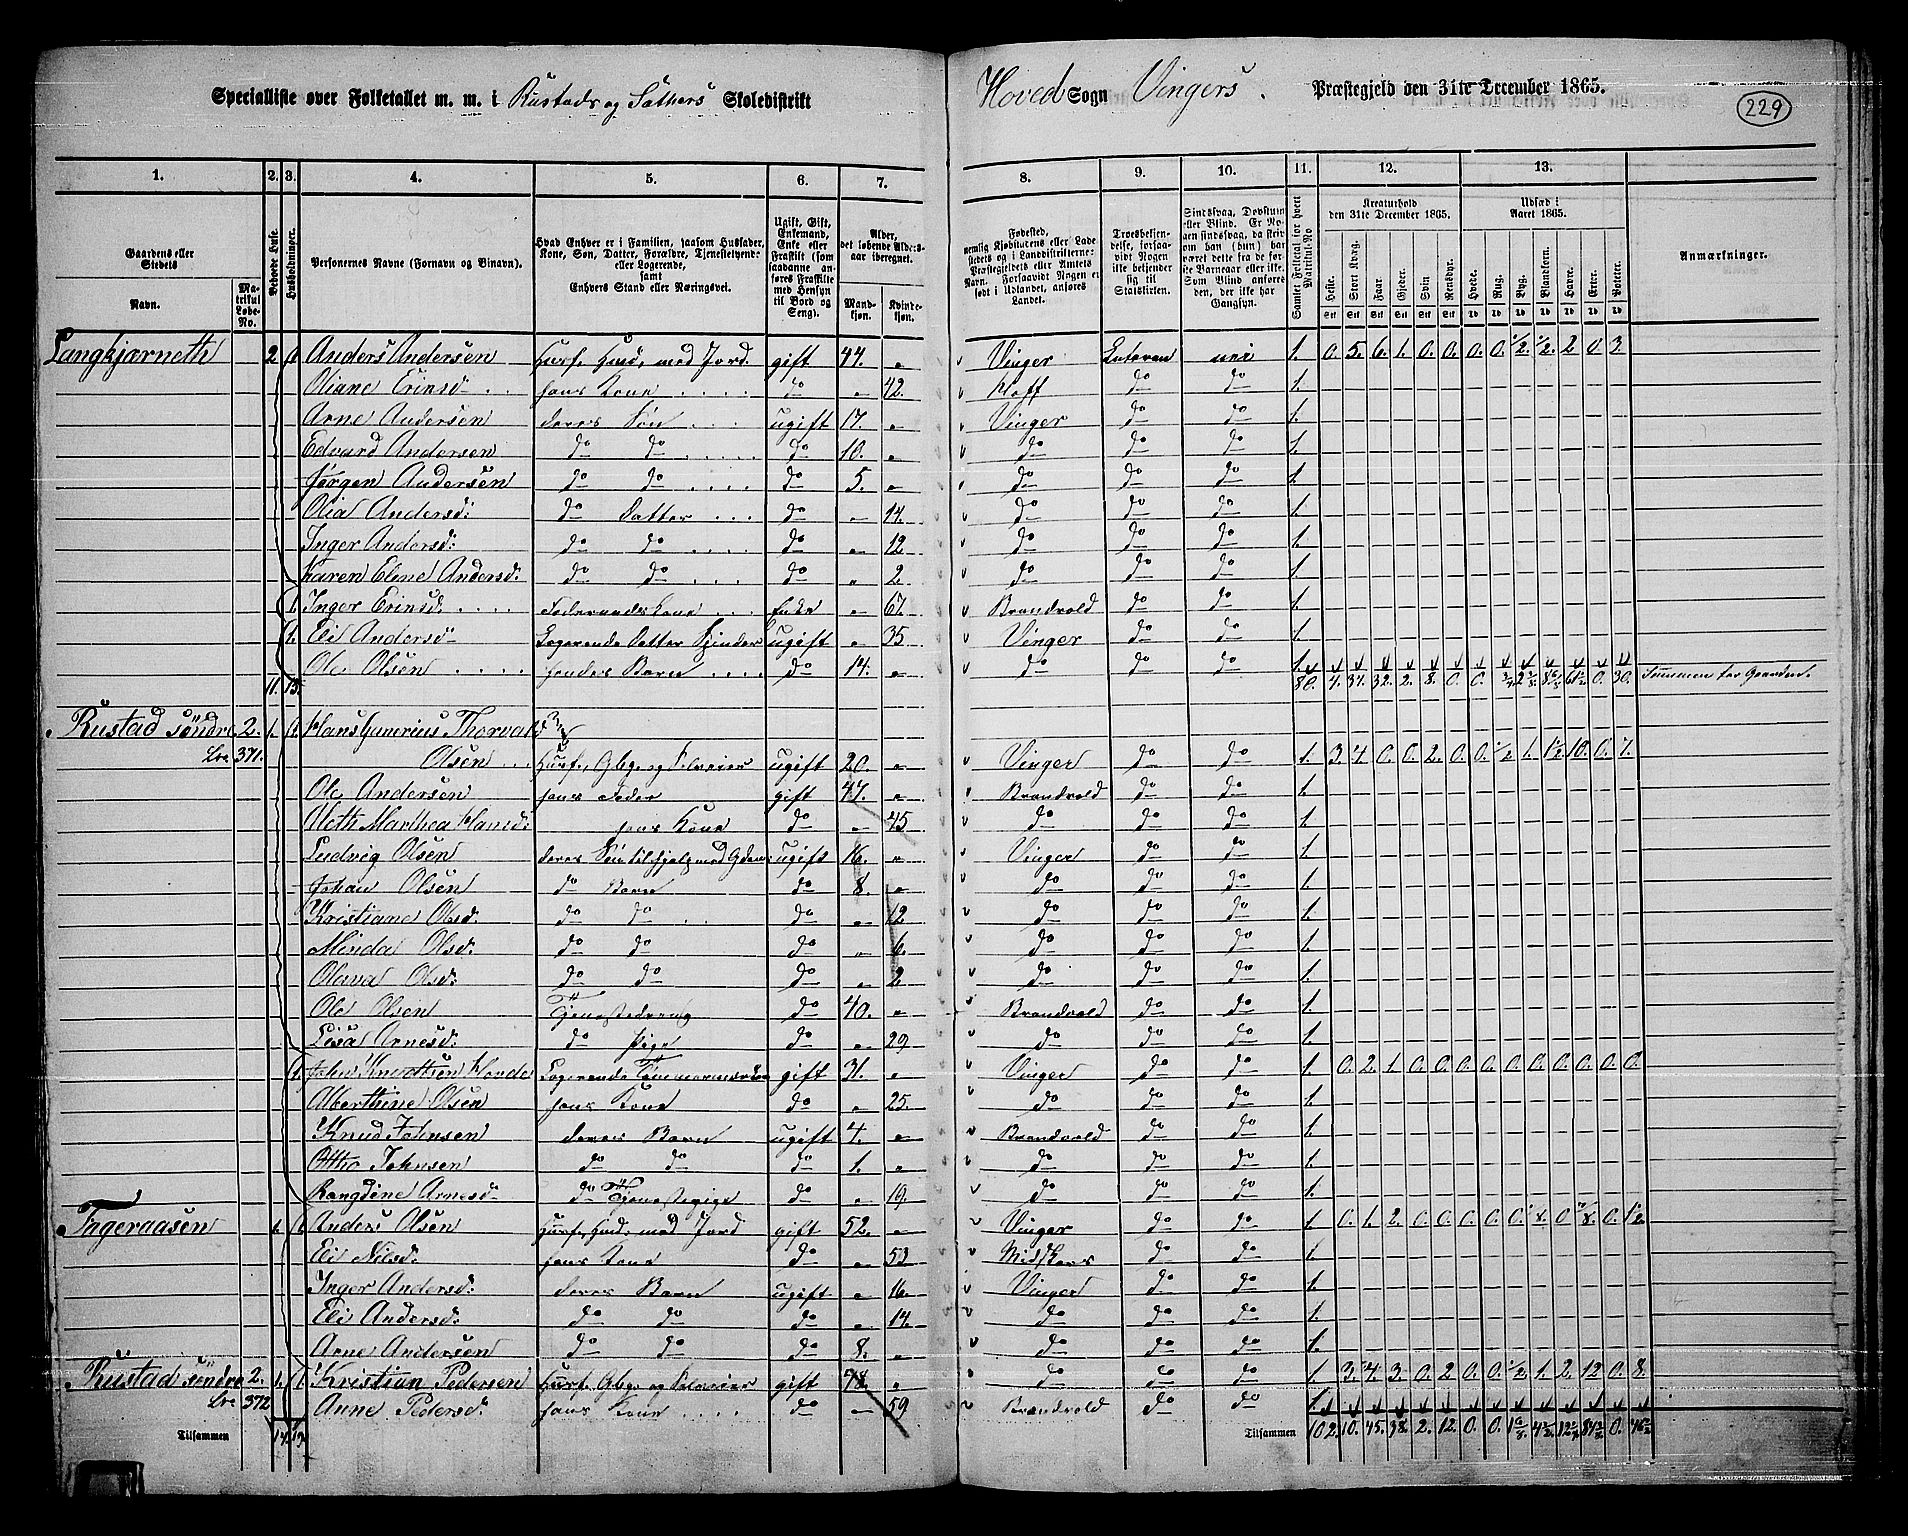 Specialliste over Folketallet m. m. i Rustads og Sæthers Skoledistrikt Hoved Sogn Vingers Præstegjeld den 31te December 1865.
229
1. 2. 3. 4. 5. 6. 7. 8. 9. 10. 11. 12. 13.
Gaardens eller Stedets
Navn.
Matrikul Løbe-No.
Beboede Huse.
Husholdninger.
Personernes Navne (Fornavn og Binavn).
Hvad Enhver er i Familien, saasom Husfader, Kone, Søn, Datter, Forældre, Tjenestetyende eller Logerende, samt Enhvers Stand eller Næringsvei.
Ugift, Gift, Enkemand, Enke eller Fraskilt (som saadanne anføres Fraskilte med Hensyn til Bord og Seng).
Alder, det løbende Aldersaar iberegnet.
Mandkjøn. Kvindekjøn.
Fødested, nemlig Kjøbstadens eller Ladestedets og i Landdistrikterne: Præstegjeldets eller Amtets Navn. Forsaavidt Nogen er født i Udlandet, anføres Landet.
Troesbekjendelse, forsaavidt Nogen ikke bekjender sig til Statskirken.
Sindssvag, Døvstum eller Blind.
Samlet Folketal for hvert Matrikul-No
Kreaturhold den 31te December 1865.
Udsæd i Aaret 1865.
Anmærkninger.
Heste. Stort Kvæg. Faar Gjeder. Svin Rensdyr. Hvede. Rug. Byg. Blandkorn. Havre. Erter. Poteter.
Langkjærneth 2 1. Anders Andersen Husf. Hmd, med Jord. gift 44. " Vinger Lutheran nei 1. 0. 5. 6. 1. 0. 0. 0. 0. 1/2. 1/2. 2 0. 3.
Oliane Erinsd. hans Kone do " 42. Hoff do do 1.
Arne Andersen deres Søn ugift 17. " Vinger do do 1.
Edvard Andersen do do do 10. " do do do 1.
Jørgen Andersen do do do 5. " do do do 1.
Olia Andersd: do Datter do " 14. do do do 1.
Inger Andersd: do do do " 12 do do do 1.
Karen Eline Andersd: do do do " 2. do do do 1.
1. Inger Erinsd. Føderaadskone Enke " 67. Brandvold do do 1.
1. Eli Andersd Logerende Datter Spinder ugift " 35. Vinger do do 1.
Ole Olsen hendes Barn do 14. " do do do 1.
11. 13. 80. 4. 34. 32. 2. 8. 0. 0. 61 1/2 0. 30. Summen for Gaarden.
Rustad söndre 2. 1. 1. Hans Gunerius Thorvald
Lve 371. Olsen Husf., Gbr. og Selveier ugift 20. " Vinger do do 1. 3. 4. 0. 0. 2. 0. 0. 1/2 1. 1 1/2 10. 0. 7.
Ole Andersen hans Fader gift 47. " Brandvold do do 1.
Aleth Marthea Hansd: hans Kone do " 45 do do do 1.
Ludvig Olsen deres Søn til hjelp med Gden ugift 16. " Vinger do do 1.
Johan Olsen do Barn do 8. " do do do 1.
Kristiane Olsd. do do do " 12 do do do 1.
Minda Olsd. do do do " 6. do do do 1.
Olava Olsd: do do do " 2 do do do 1.
Ole Olsen Tjenestedreng do 40. " Brandvold do do 1.
Lisa Arnesd: do Pige do " 29 do do do 1.
1. John Knudtsen Logerende Tømmermand gift 31. " Vinger do do 1. 0. 2. 1. 0. 0. 0. 0. 0. 0. 0. 0. 0. 0.
Alberthine Olsen hans Kone do " 25. do do do 1.
Knud Johnsen deres Barn ugift 4. " Brandvold do do 1.
Ottho Johnsen do do do 1. " do do do 1.
Rangdine Arnesd. do Tjenestepige do " 19 do do do 1.
Tageraasen 1. 1. Anders Olsen Husf. Hmd, med Jord gift 52. " Vinger do do 1. 0. 1. 2. 0. 0. 0. 0. 0
Eli Nilsd: hans Kone do " 53 Midskov do do 1.
Inger Andersd: deres Barn ugift " 16. Vinger do do 1.
Eli Andersd: do do do " 14. do do do 1.
Arne Andersen do do do 8. " do do do 1.
Rustad söndre 2. 1. 1 Kristian Pedersen Husf. Gbr. og Selveier gift 78. " do do do 1. 3. 4. 3. 0. 2. 0. 0. 1/2 1. 2. 12. 0. 8.
Lve 372 Anne Pedersd: hans Kone do " 59 Brandvold do do 1.
Tilsammen 14. 19. Tilsammen 102. 10. 45. 38. 2. 12. 0. 0.